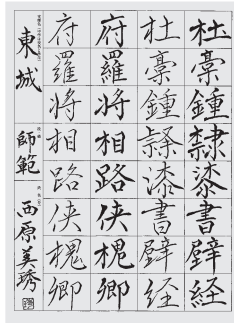 杜稾鍾隷漆書壁経
杜稾鍾隷漆書壁経
府羅将相路侠槐卿
府羅将相路侠槐卿
東城
師範
西原美琇